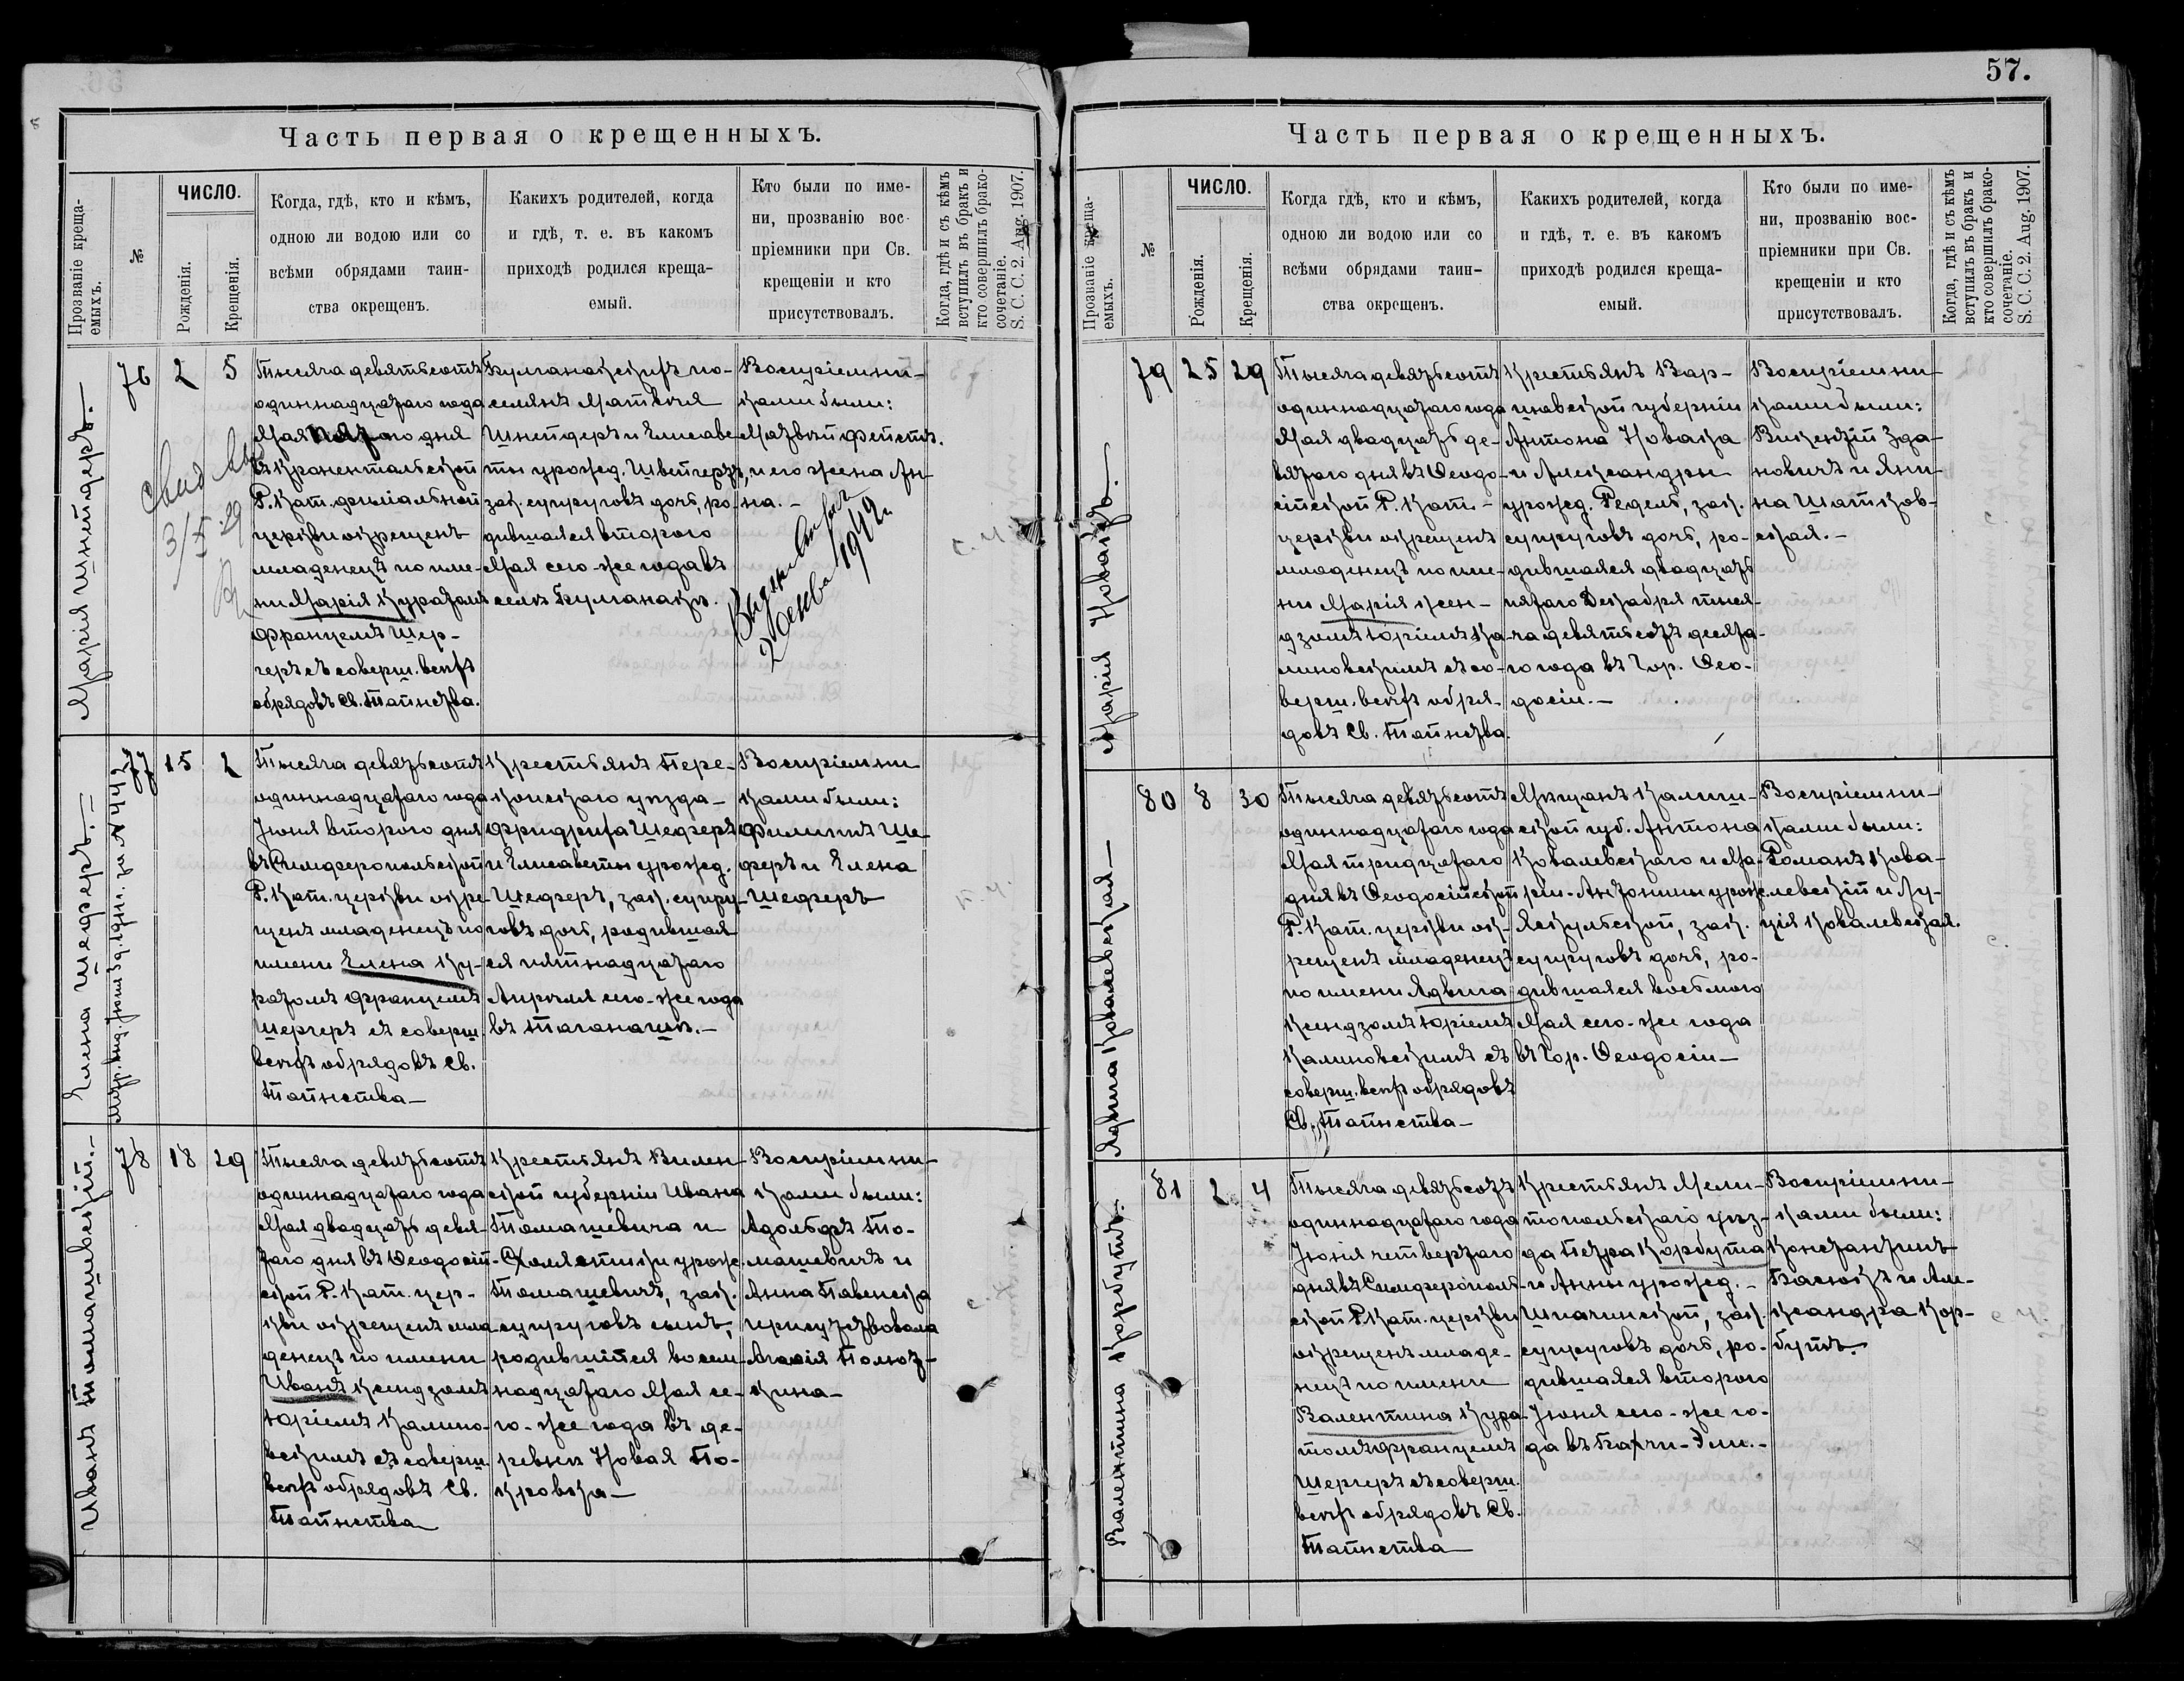 57.
Часть первая о крещенныхъ.
Прозваніе креща-
емыхъ.
№
ЧИСЛО.
Рожденія.
Крещенія.
Когда, гдѣ, кто и кѣмъ,
одною ли водою или со
всѣми обрядами таин-
ства окрещенъ.
Какихъ родителей, когда
и гдѣ, т. е. въ какомъ
приходѣ родился креща-
емый.
Кто были по име-
ни, прозванію вос-
пріемники при Св.
крещеніи и кто
присутствовалъ.
Когда, гдѣ и съ кѣмъ
вступилъ въ бракъ и
кто совершилъ брако-
сочетаніе.
S. C. C. 2. Aug. 1907.
Марія Шнейдеръ.-
76
2
5
3/X 29
Тысяча девятьсотъ
одиннадцатаго года
Мая пятаго дня
въ Кронентальской
Р. Кат. филіальной
церкви окрещенъ
младенецъ по име-
ни Марія Куратомъ
Францемъ Шер-
геръ съ соверш. всѣхъ
обрядовъ Св. Таинства.
Булганакскихъ по-
селянъ Матвѣя
Шнейдеръ и Елисаве-
ты урожд. Швейгертъ,
зак. супруговъ дочь, ро-
дившаяся второго
Мая сего-же года въ
селѣ Булганакъ.
Воспріемни-
ками были:
Матвѣй Фейстъ.
и его жена Ан-
на.-
1942
Елена Шеферъ.-
77
15
2
Тысяча девятьсотъ
одиннадцатаго года
Іюня второго дня
въ Симферопольской
Р. Кат. церкви окре-
щенъ младенецъ по
имени Елена Ку-
ратомъ Францемъ
Шергеръ съ соверш.
всѣхъ обрядовъ Св.
Таинства-
Крестьянъ Пере-
копскаго уѣзда-
Фридриха Шеферъ
и Елисаветы урожд.
Шеферъ, зак. супру-
говъ дочь, родившая-
ся пятнадцатаго
Апрѣля сего-же года
въ Таганашѣ.-
Воспріемни
ками были:
Филиппъ Ше-
феръ и Елена
Шеферъ
Иванъ Томашевскій.-
78
18
29
Тысяча девятьсотъ
одиннадцатаго года
Мая двадцать девя-
таго дня въ Ѳеодосій-
ской Р. Кат. цер-
кви окрещенъ мла-
денецъ по имени
Иванъ Ксендзомъ
Юріемъ Калино-
вскимъ съ соверш.
всѣхъ обрядовъ Св.
Таинства
Крестьянъ Вилен-
ской губерніи Ивана
Томашевича и
урожд.
Томашевичъ, зак.
супруговъ сынъ,
родившійся восем-
надцатаго Мая се-
го-же года въ де-
ревнѣ Новая По-
кровка-
Воспріемни-
ками были:
Адольфъ То-
машевичъ и
Анна
присутствовала
Часть первая о крещенныхъ.
Прозваніе креща-
емыхъ.
№
ЧИСЛО.
Рожденія.
Крещенія.
Когда гдѣ, кто и кѣмъ,
одною ли водою или со
всѣми обрядами таин-
ства окрещенъ.
Какихъ родителей, когда
и гдѣ, т. е. въ какомъ
приходѣ родился креща-
емый.
Кто были по име-
ни, прозванію вос-
пріемники при Св.
крещеніи и кто
присутствовалъ.
Когда, гдѣ и съ кѣмъ
вступилъ въ бракъ и
кто совершилъ брако-
сочетаніе.
S. C. C. 2. Aug. 1907.
Марія Новакъ.-
79
25
29
Тысяча девятьсотъ
одиннадцатаго года
Мая двадцать де-
вятаго дня въ Ѳеодо-
сійской Р. Кат.-
церкви окрещенъ
младенецъ по име-
ни Марія Ксен-
дзомъ Юріемъ Ка-
линовскимъ съ со-
верш. всѣхъ обря-
довъ Св. Таинства
Крестьянъ Вар-
шавской губерніи
Антона Новака
и Александры
урожд. Редель, зак.
супруговъ дочь, ро-
дившаяся двадцать
пятаго Декабря тыся-
ча девятьсотъ десята-
го года въ гор. Ѳео-
досіи.-
Воспріемни-
ками были:
Викентій Зда-
новичъ и Яни-
на Шатков-
ская.-
Ядвига Ковалевская-
80
8
30
Тысяча девятьсотъ
одиннадцатаго года
Мая тридцатаго
дня въ Ѳеодосійской
Р. Кат. церкви ок-
рещенъ младенецъ
по имени Ядвига
Ксендзомъ Юріемъ
Калиновскимъ съ
соверш. всѣхъ обрядовъ
Св. Таинства-
Мѣщанъ Калиш-
ской губ. Антона
Ковалевскаго и Ма-
ріи-Антонины урожд.
Яскульской, зак.
супруговъ дочь, ро-
дившаяся восьмого
Мая сего-же года
въ гор. Ѳеодосіи-
Воспріемни-
ками были:
Романъ Кова-
левскій и Лу-
ція Ковалевская.
Валентина Корбутъ.
81
2
4
Тысяча девятьсотъ
одиннадцатаго года
Іюня четвертаго
дня въ Симферополь-
ской Р. Кат. церкви
окрещенъ младе-
нецъ по имени
Валентина Кура-
томъ Францемъ
Шергеръ съ соверш.
всѣхъ обрядовъ Св.
Таинства-
Крестьянъ Мели-
топольскаго уѣз-
да Петра Корбута
и Анны урожд.-
Шпачинской, зак.
супруговъ дочь, ро-
дившаяся второго
Іюня сего-же го-
да въ
Воспріемни-
ками были:
Константинъ
и Але-
ксандра Кор-
бутъ.